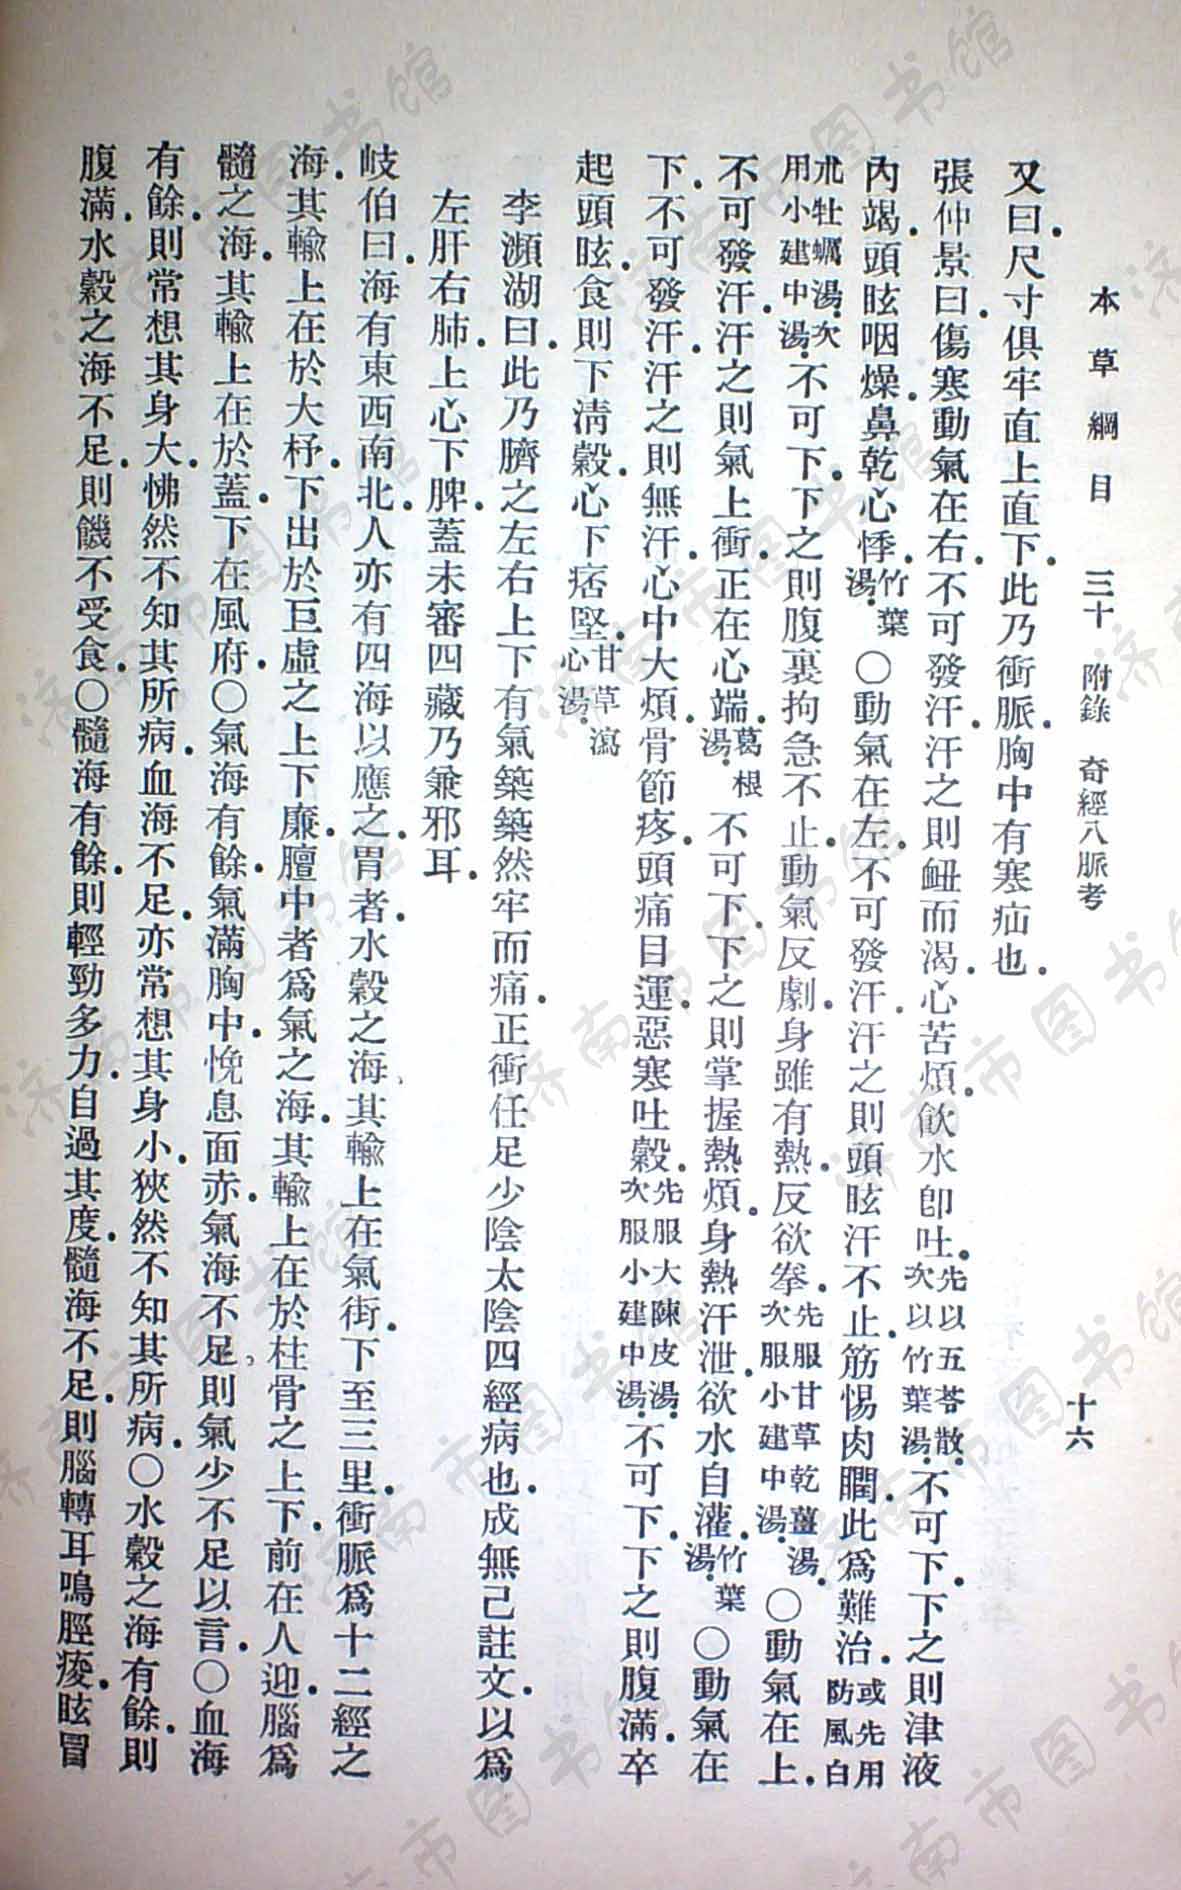 本草綱目 三十 附錄 奇經八脈考 十六
又曰．尺寸俱牢直上直下．此乃衝脈．胸中有寒疝也．
張仲景曰．傷寒動氣在右．不可發汗．汗之則衄而渴．心苦煩．飲水卽吐．先以五苓散．次以竹葉湯．不可下．下之則津液
內竭．頭眩咽燥．鼻乾心悸．竹葉湯．○動氣在左．不可發汗．汗之則頭眩汗不止．筋惕肉瞤．此爲難治．或先用防風白
朮牡蠣湯．次用小建中湯．不可下．下之則腹裏拘急不止．動氣反劇．身雖有熱．反欲拳．先服甘草乾薑湯．次服小建中湯．○動氣在上．
不可發汗．汗之則氣上衝．正在心端．葛根湯．不可下．下之則掌握熱煩．身熱汗泄．欲水自灌．竹葉湯．○動氣在
下．不可發汗．汗之則無汗．心中大煩．骨節疼．頭痛目運．惡寒吐穀．先服大陳皮湯．次服小建中湯．不可下．下之則腹滿．卒
起頭眩．食則下淸穀．心下痞堅．甘草瀉心湯．
李瀕湖曰．此乃臍之左右上下有氣築築然牢而痛．正衝任足少陰太陰四經病也．成無己註文．以爲
左肝右肺．上心下脾．蓋未審四藏乃兼邪耳．
岐伯曰．海有東西南北．人亦有四海以應之．胃者．水穀之海、其輸上在氣街．下至三里．衝脈爲十二經之
海．其輸上在於大杼．下出於巨虛之上下廉．膻中者爲氣之海．其輸上在於柱骨之上下．前在人迎．腦爲
髓之海．其輸上在於蓋．下在風府．○氣海有餘．氣滿胸中．悗息面赤．氣海不足、則氣少不足以言．○血海
有餘．則常想其身大．怫然不知其所病．血海不足．亦常想其身小．狹然不知其所病．○水穀之海有餘．則
腹滿．水穀之海不足．則饑不受食．○髓海有餘．則輕勁多力．自過其度．髓海不足．則腦轉耳鳴．脛痠．眩冒